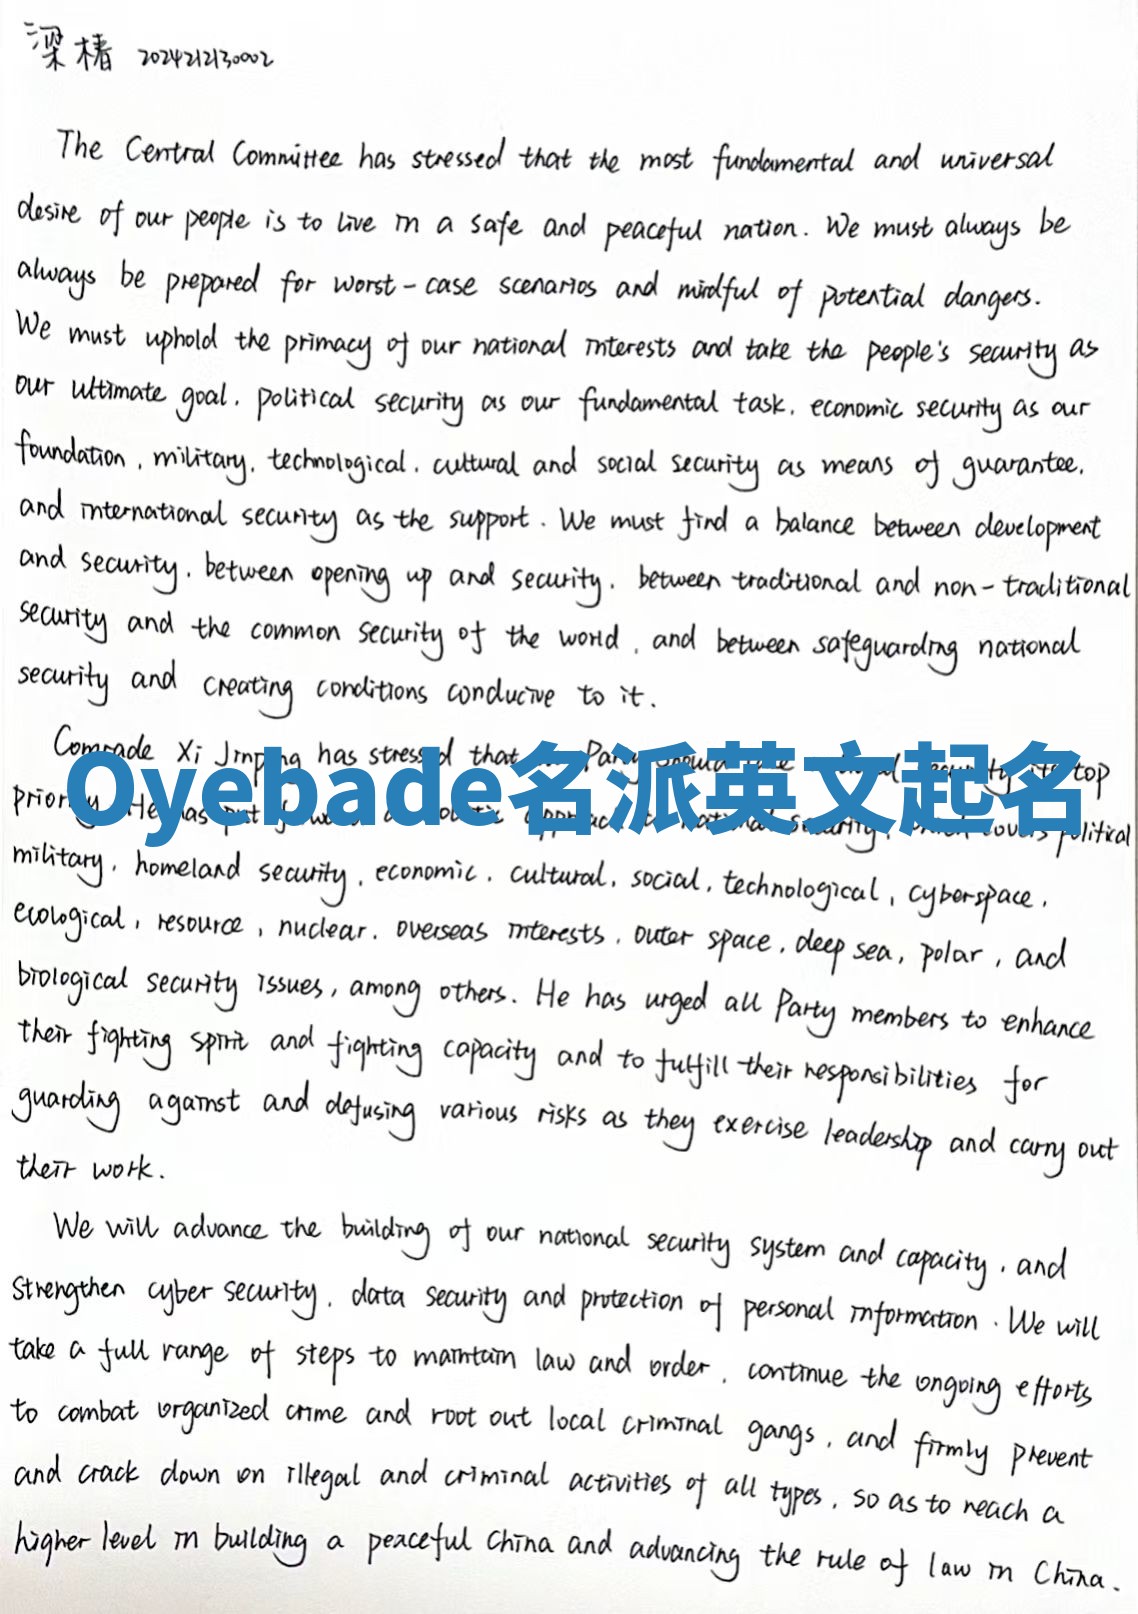 梁椿 2024212130002
The Central Committee has stressed that the most fundamental and universal
desire of our people is to live in a safe and peaceful nation. We must always be
always be prepared for worst-case scenarios and mindful of potential dangers.
We must uphold the primacy of our national interests and take the people's security as
our ultimate goal, political security as our fundamental task, economic security as our
foundation, military, technological, cultural and social security as means of guarantee,
and international security as the support. We must find a balance between development
and security, between opening up and security, between traditional and non-traditional
security and the common security of the world, and between safeguarding national
security and creating conditions conducive to it.
Comrade Xi Jinping has stressed that Party should top
Oyebade名派英文起名
priority. He has put national security, which covers political
military, homeland security, economic, cultural, social, technological, cyberspace,
ecological, resource, nuclear, overseas interests, outer space, deep sea, polar, and
biological security issues, among others. He has urged all Party members to enhance
their fighting spirit and fighting capacity and to fulfill their responsibilities for
guarding against and defusing various risks as they exercise leadership and carry out
their work.
We will advance the building of our national security system and capacity, and
strengthen cyber security, data security and protection of personal information. We will
take a full range of steps to maintain law and order, continue the ongoing efforts
to combat organized crime and root out local criminal gangs, and firmly prevent
and crack down on illegal and criminal activities of all types, so as to reach a
higher level in building a peaceful China and advancing the rule of law in China.